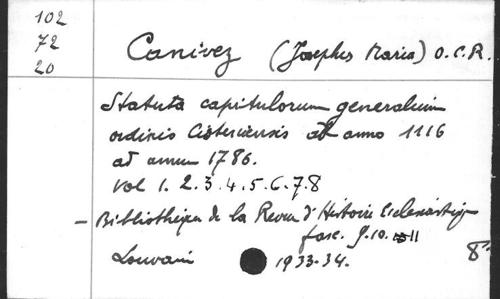 102
72
20
Canivez (Josephus Maria) O.C.R.
Statuta capitulorum generalium
ordinis Cisterciensis ab anno 1116
ad annum 1786.
vol 1. 2. 3. 4. 5. 6. 7. 8
- Bibliothèque de la Revue d'Histoire Ecclésiastique
fasc. 9. 10. 11
Louvain 1933-34. 8°